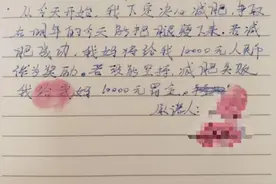 从今天开始，我下定决心减肥，争取
在明年的今天前把腿瘦下来。若减
肥成功，我妈将给我10000元人民币
作为奖励。若我的坚持，减肥失败
我给我妈10000元罚金。
承诺人：